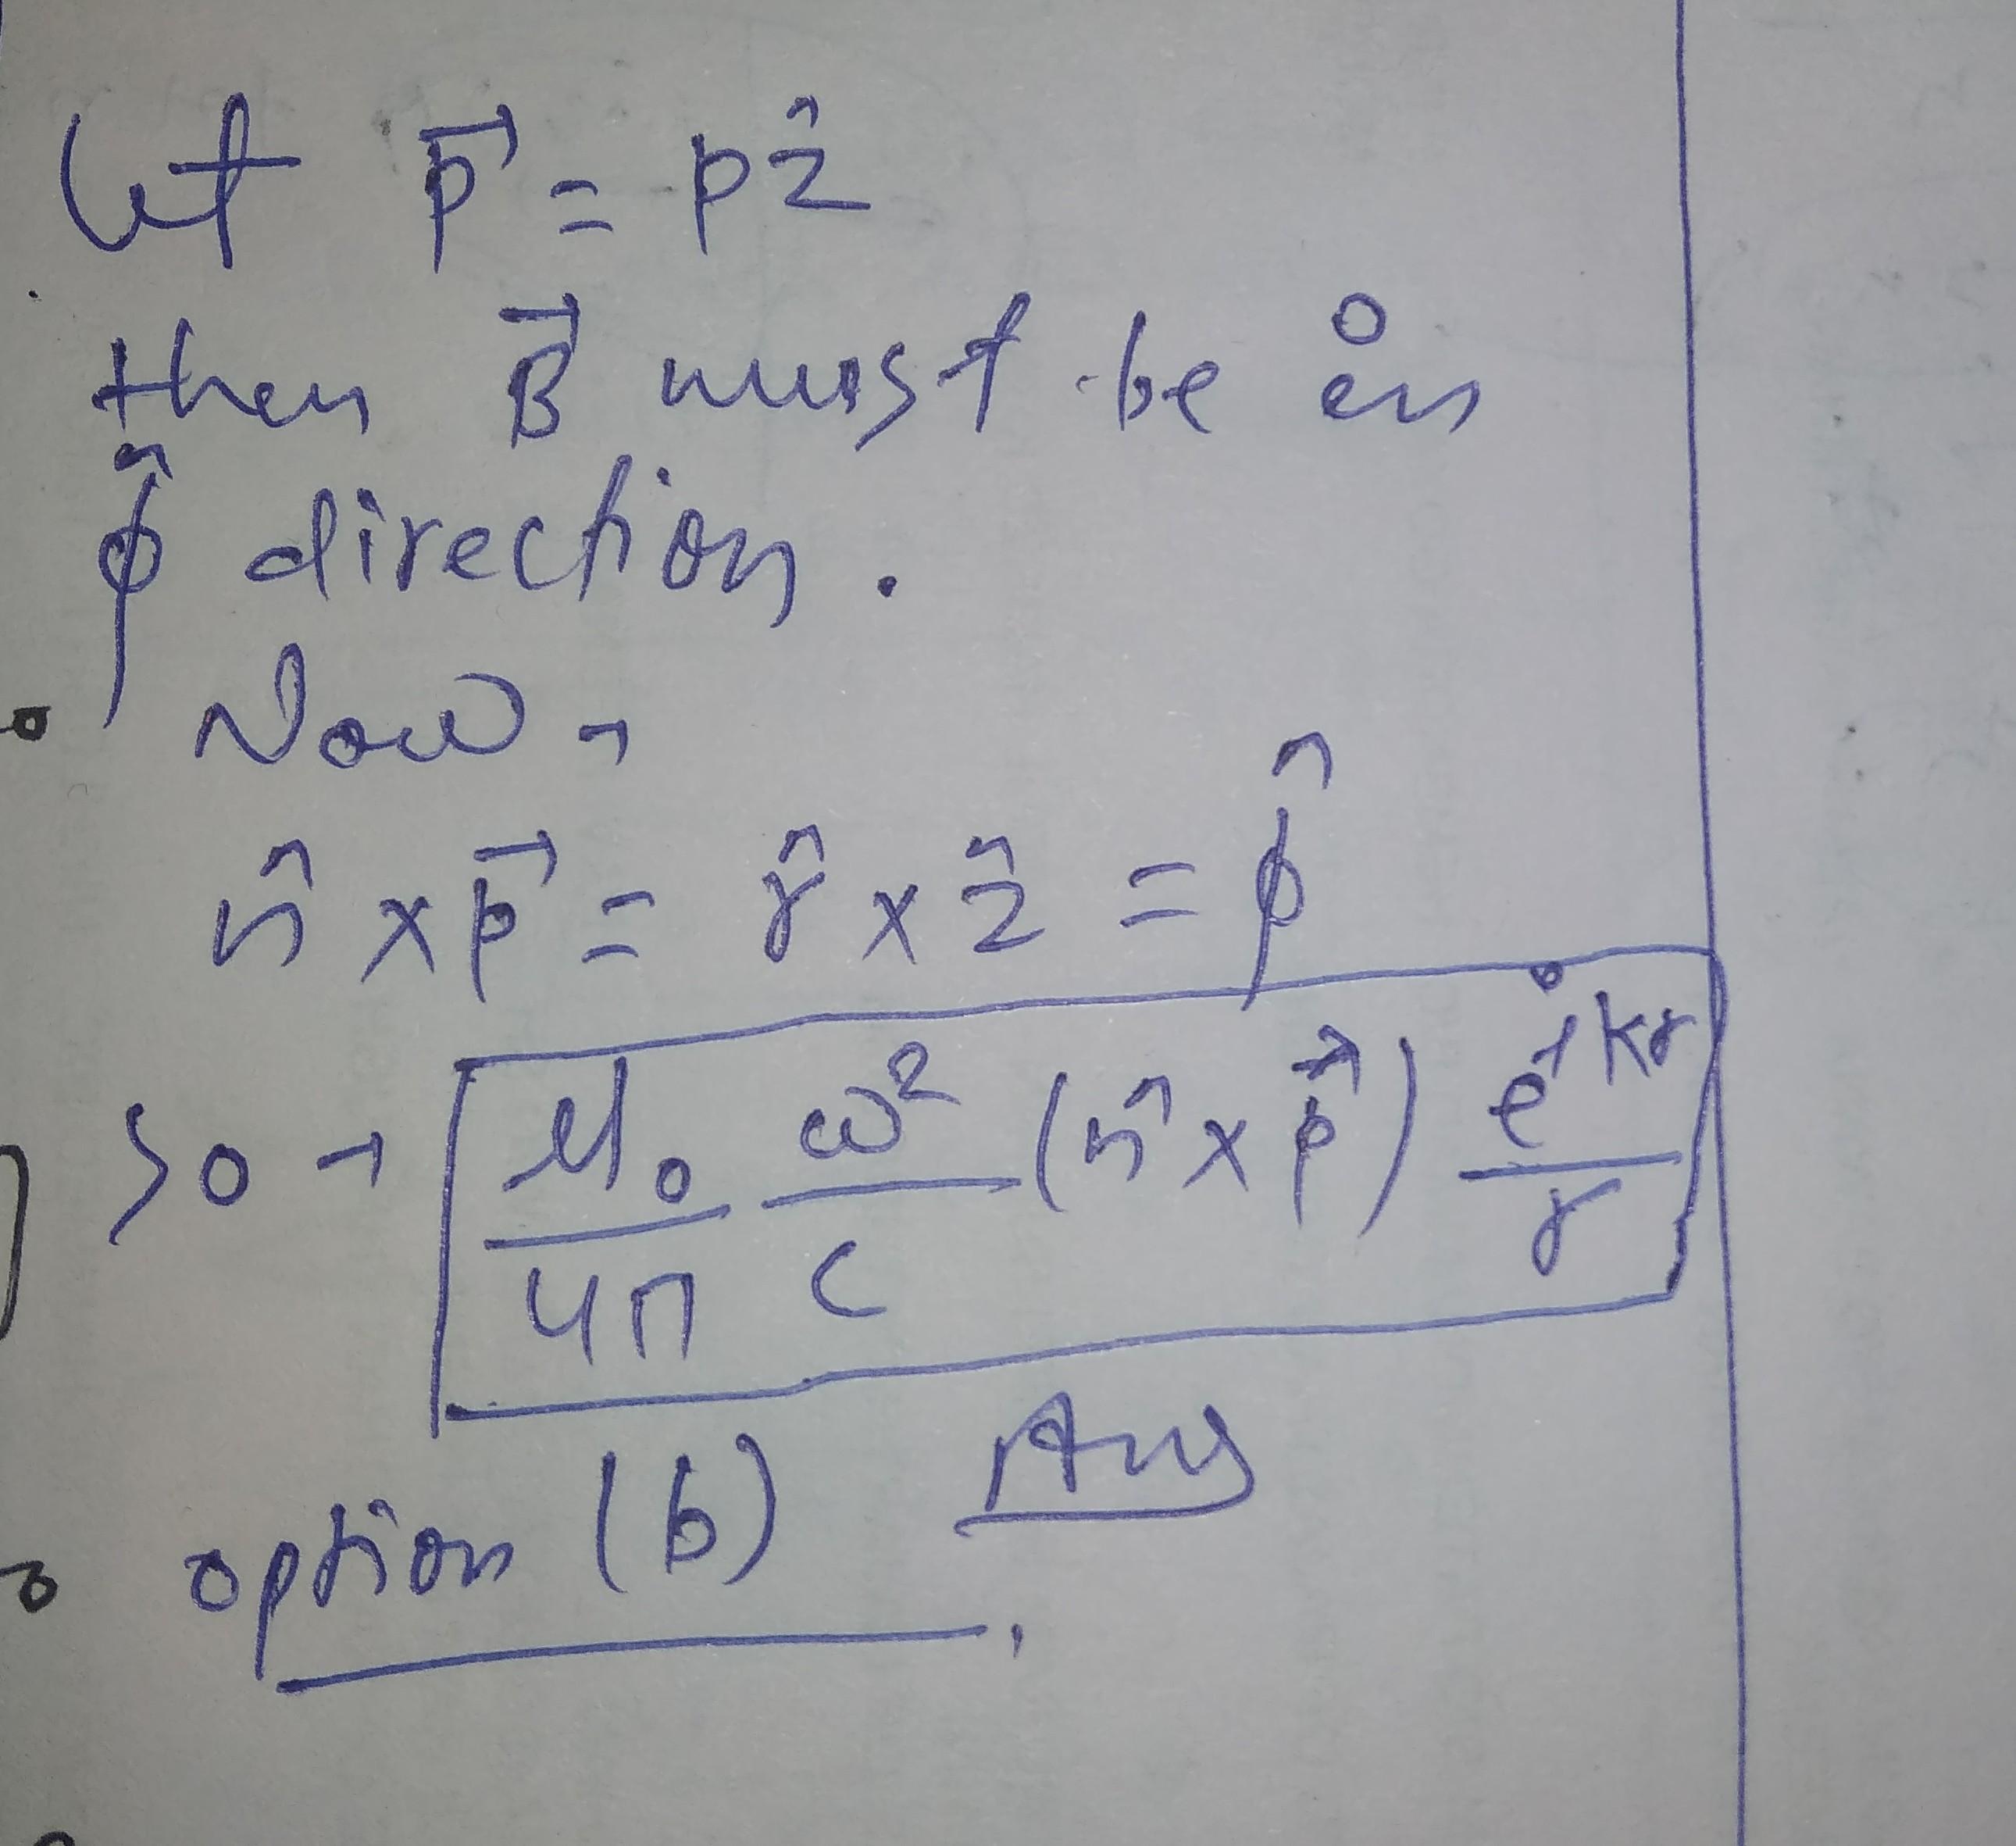 Let p⃗ = pẑ
then B⃗ must be in
φ̂ direction.
Now →
n̂ × p⃗ = r̂ × ẑ = φ̂
So → μ₀/4π ω²/c (n̂ × p⃗) e^{ikr}/r
option (b) Ans